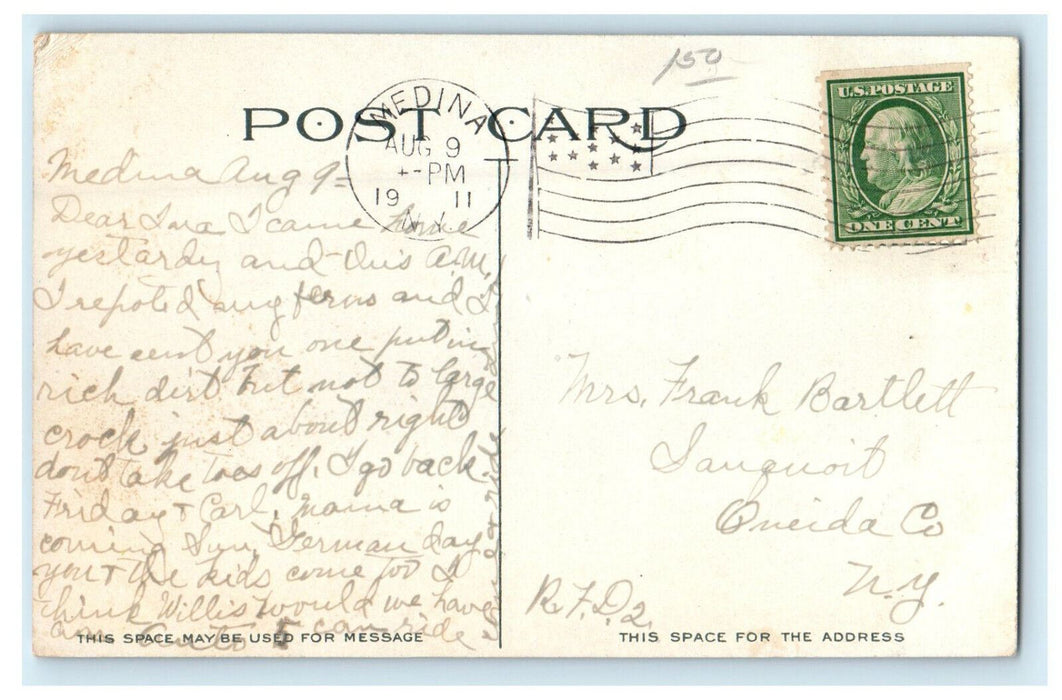 150
POST CARD
MEDINA
AUG 9
+-PM
19 11
N.Y.
U.S. POSTAGE
ONE CENT
Medina Aug 9-
Dear Ina I came home
yestardy and this A.M.
I repoted my ferns and I
have sent you one put in
rich dirt but not to large
crock just about right
dont take toes off. I go back
Friday & Carl, mama is
coming Sun, German day
you & the kids come too I
think Willis would we have
an auto I can ride
THIS SPACE MAY BE USED FOR MESSAGE
Mrs. Frank Bartlett
Sauquoit
Oneida Co
N.Y.
R.F.D. 2
THIS SPACE FOR THE ADDRESS